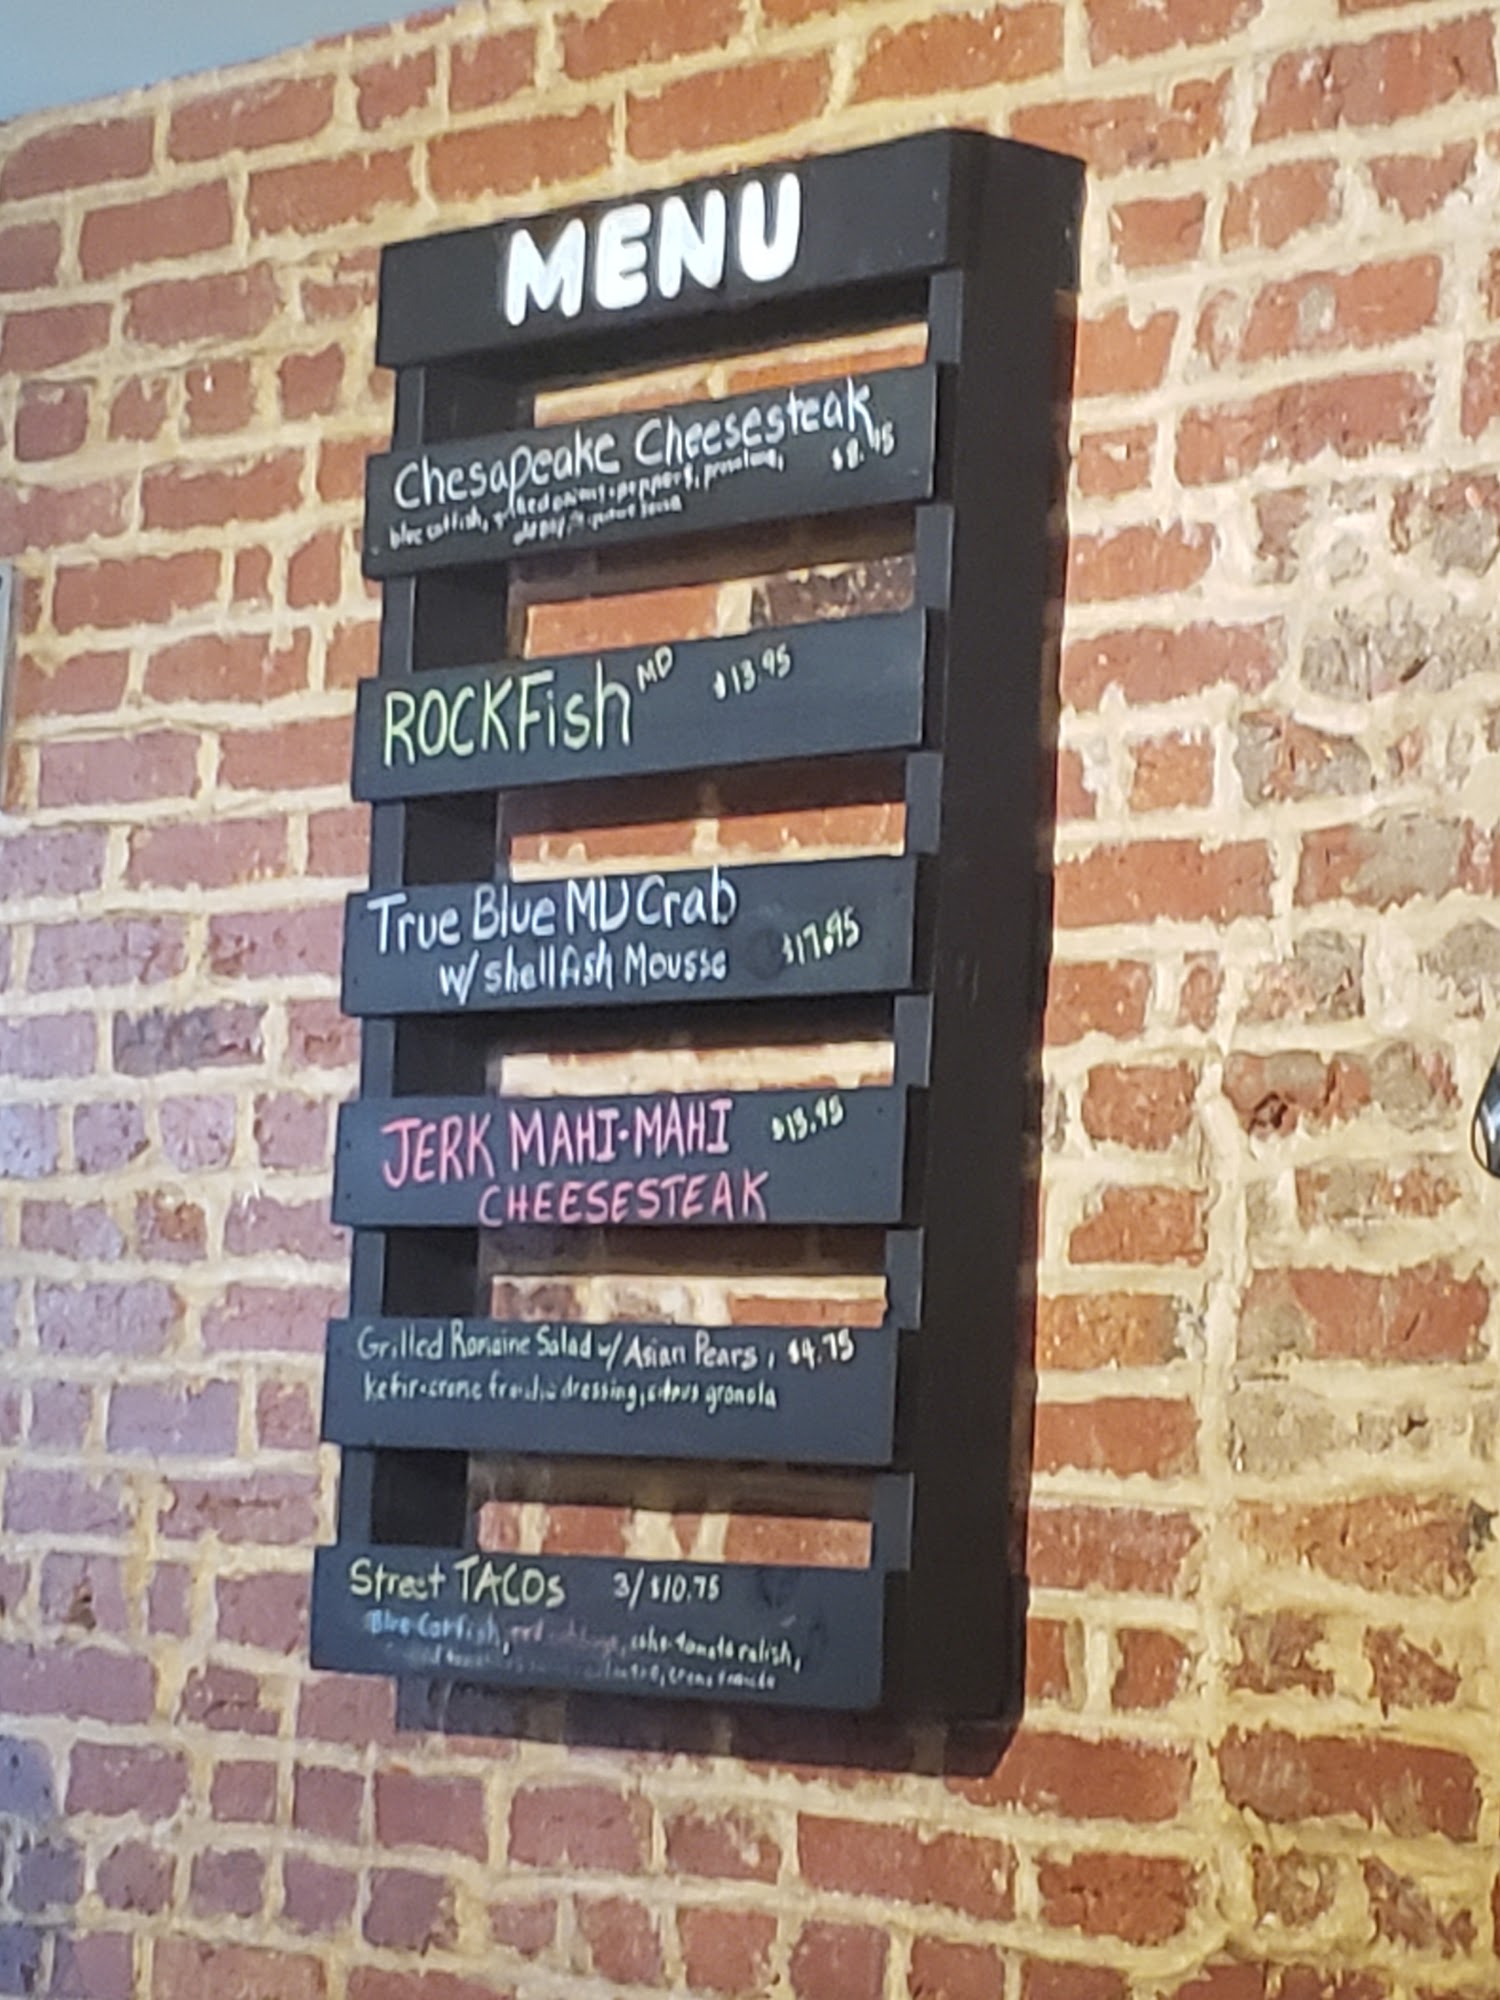 MENU
Chesapeake Cheesesteak
blue catfish, grilled onions + peppers, provolone, $8.95
old bay
ROCKFish MD $13.95
True Blue MD Crab
w/ shellfish Mousse $17.95
JERK MAHI-MAHI $13.95
CHEESESTEAK
Grilled Romaine Salad w/ Asian Pears, $9.75
kefir-creme fraiche dressing, citrus granola
Street TACOs 3/$10.75
Blue Catfish, red cabbage, cake-tomato relish,
creme fraiche